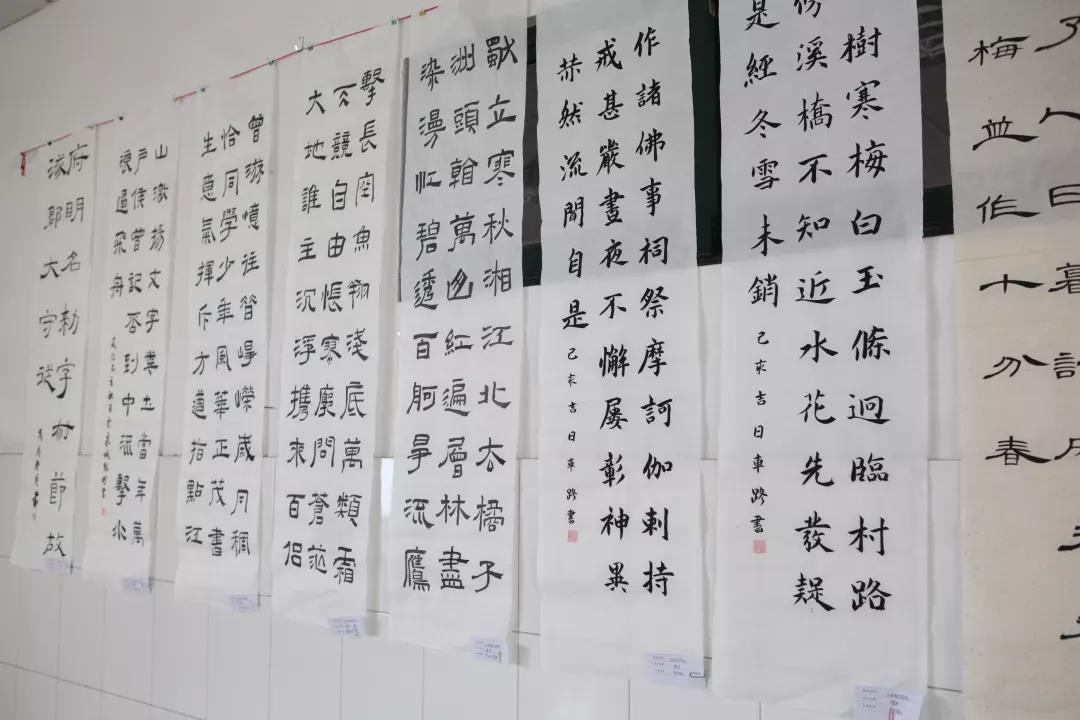 了人日暮詩成天
梅並作十分春
樹寒梅白玉條迥臨村路
傍溪橋不知近水花先發疑
是經冬雪未銷
己亥吉日車路書
作諸佛事祠祭摩訶伽剌持
戒甚嚴晝夜不懈屢彰神異
赫然流聞自是
己亥吉日車路書
獨立寒秋湘江北去橘子
洲頭看萬山紅遍層林盡
染漫江碧透百舸爭流鷹
擊長空魚翔淺底萬類霜
天競自由悵寥廓問蒼茫
大地誰主沉浮攜來百侶
曾游憶往昔崢嶸歲月稠
恰同學少年風華正茂書
生意氣揮斥方遒指點江
山激揚文字糞土當年萬
戶侯曾記否到中流擊水
浪遏飛舟
府明名勅字節故
涿郡大守